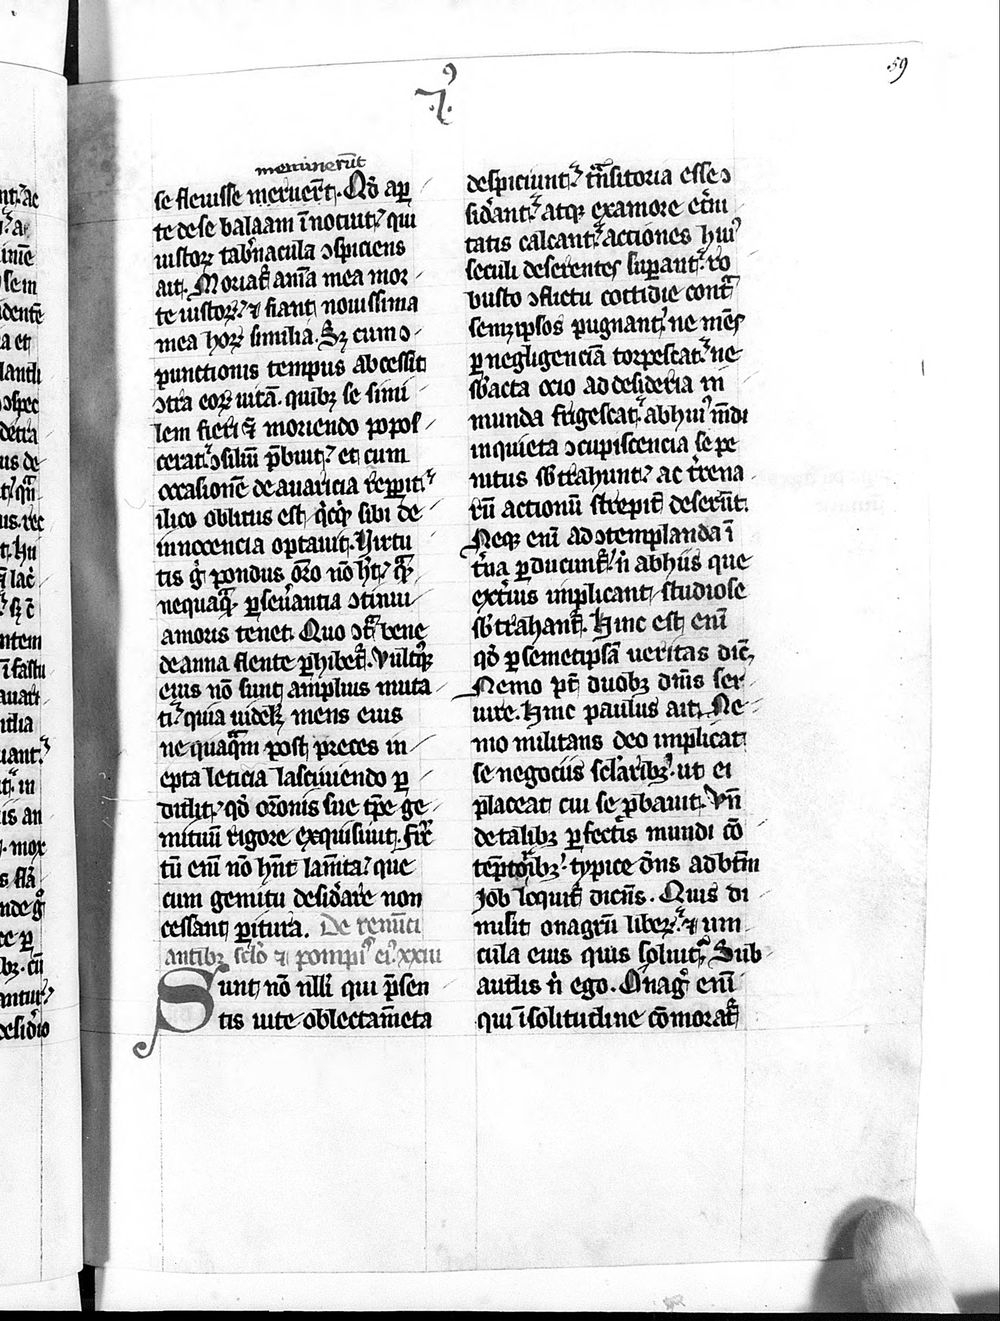 59
meminerūt
se fleuisse meruer̄t. Qđ aꝑ
te de se balaam īnotuit, qui
iustoꝝ tab̓nacula ɔspiciens
ait. Moriat᷑ aīa mea mor
te iustoꝝ, ⁊ fiant nouissima
mea hoꝝ similia. Sꝫ cum ɔ
punctionis tempus abcessit
ɔtra eoꝝ uitā, quibꝫ se simi
lem fieri moriendo popos
cerat, ɔsiliū p̄buit, et cum
occasionē de auaricia repperit
ilico oblitus est q̇cq̇d sibi de
innocencia optauit. Virtu
tis g̊ pondus or̄o nō h̄t, qᷓ
nequaqᷓ ꝑseu̓antia ɔtinui
amoris tenet. Quo ɔt̄ bene
de anna flente ꝑhibet᷑. Vultꝰqꝫ
eius nō sunt amplius muta
ti, quia uidelꝫ mens eius
ne quaqᷓm post preces in
epta leticia lasciuiendo ꝑ
didit, qđ or̄onis sue tp̄e ge
mituū rigore exquisiuit. Fir̄
tū eni nō hn̄t lam̄ta, que
cum gemitu desid̓are non
cessant ꝑitura. De renūci
antibꝫ sc̄lo ⁊ pompis ei᾽. xxiii
Sunt nō nll̄i qui p̄sen
tis uite oblectam̄eta
despiciunt, tn̄sitoria esse ɔ
sid̓ant, atqꝫ ex amore et̓ni
tatis calcant, actiones huiꝰ
seculi deserentes suꝑant, ro
busto ɔflictu cottidie cont̄
semꝫ ipsos pugnant, ne mēs
ꝑ negligenciā torpescat, ne
sb̓acta ocio ad desideria in
munda frigescat, ab huiꝰ mūdi
inquieta ɔcupiscencia se pe
nitus sb̓trahunt, ac t̓rena
rū actionū strepit᷑ deserūt.
Neqꝫ eni ad ɔtemplanda ī
t̓na ꝑducunt᷑, n̄ ab hiis que
ext̓ius implicant, studiose
sb̓trahant᷑. Hinc est eni
qđ ꝑ semetipsā ueritas dic̄,
Nemo pt̄ duobꝫ dn̄is ser
uire. Hinc paulus ait, Ne
mo militans deo implicat
se negociis sc̄laribꝫ, ut ei
placeat cui se ꝓbauit. Vn̄
de talibꝫ ꝑfectis mundi cō
tēptoribꝫ, typice dn̄s ad btm̄
Job loquit᷑ dicn̄s. Quis di
misit onagrū liberū, ⁊ uin
cula eius quis soluit, Sub
audis n̄ ego. Onag᷑ eni
qui ī solitudine cōmorat᷑